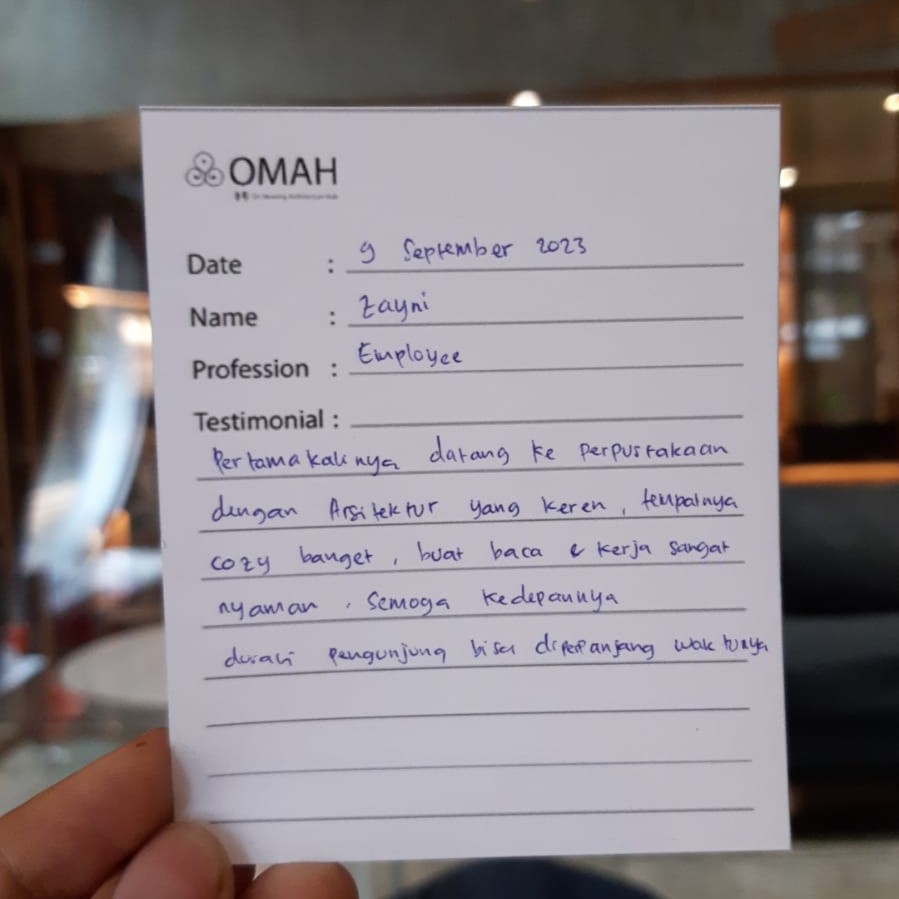 OMAH
On Meaning Architecture Hub
Date : 9 September 2023
Name : Zayni
Profession : Employee
Testimonial :
Pertamakalinya datang ke perpustakaan
dengan Arsitektur yang keren, tempatnya
cozy banget, buat baca & kerja sangat
nyaman. Semoga kedepannya
durasi pengunjung bisa diperpanjang waktunya